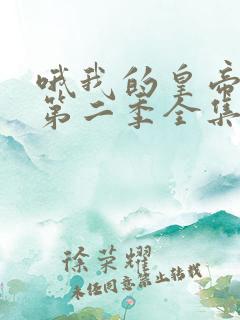 哦我的皇帝
第二季全集
徐荣耀
未经同意禁止转载